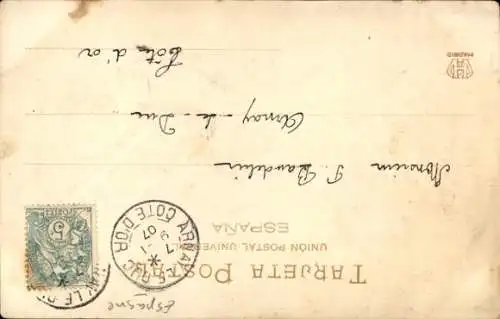 TARJETA POSTAL
UNIÓN POSTAL UNIVERSAL
ESPAÑA
Monsieur
Arnay-le-Duc
Côte d'or
MADRID
ARNAY-LE-DUC
7 -1
9
07
CÔTE D'OR
5
Espagne